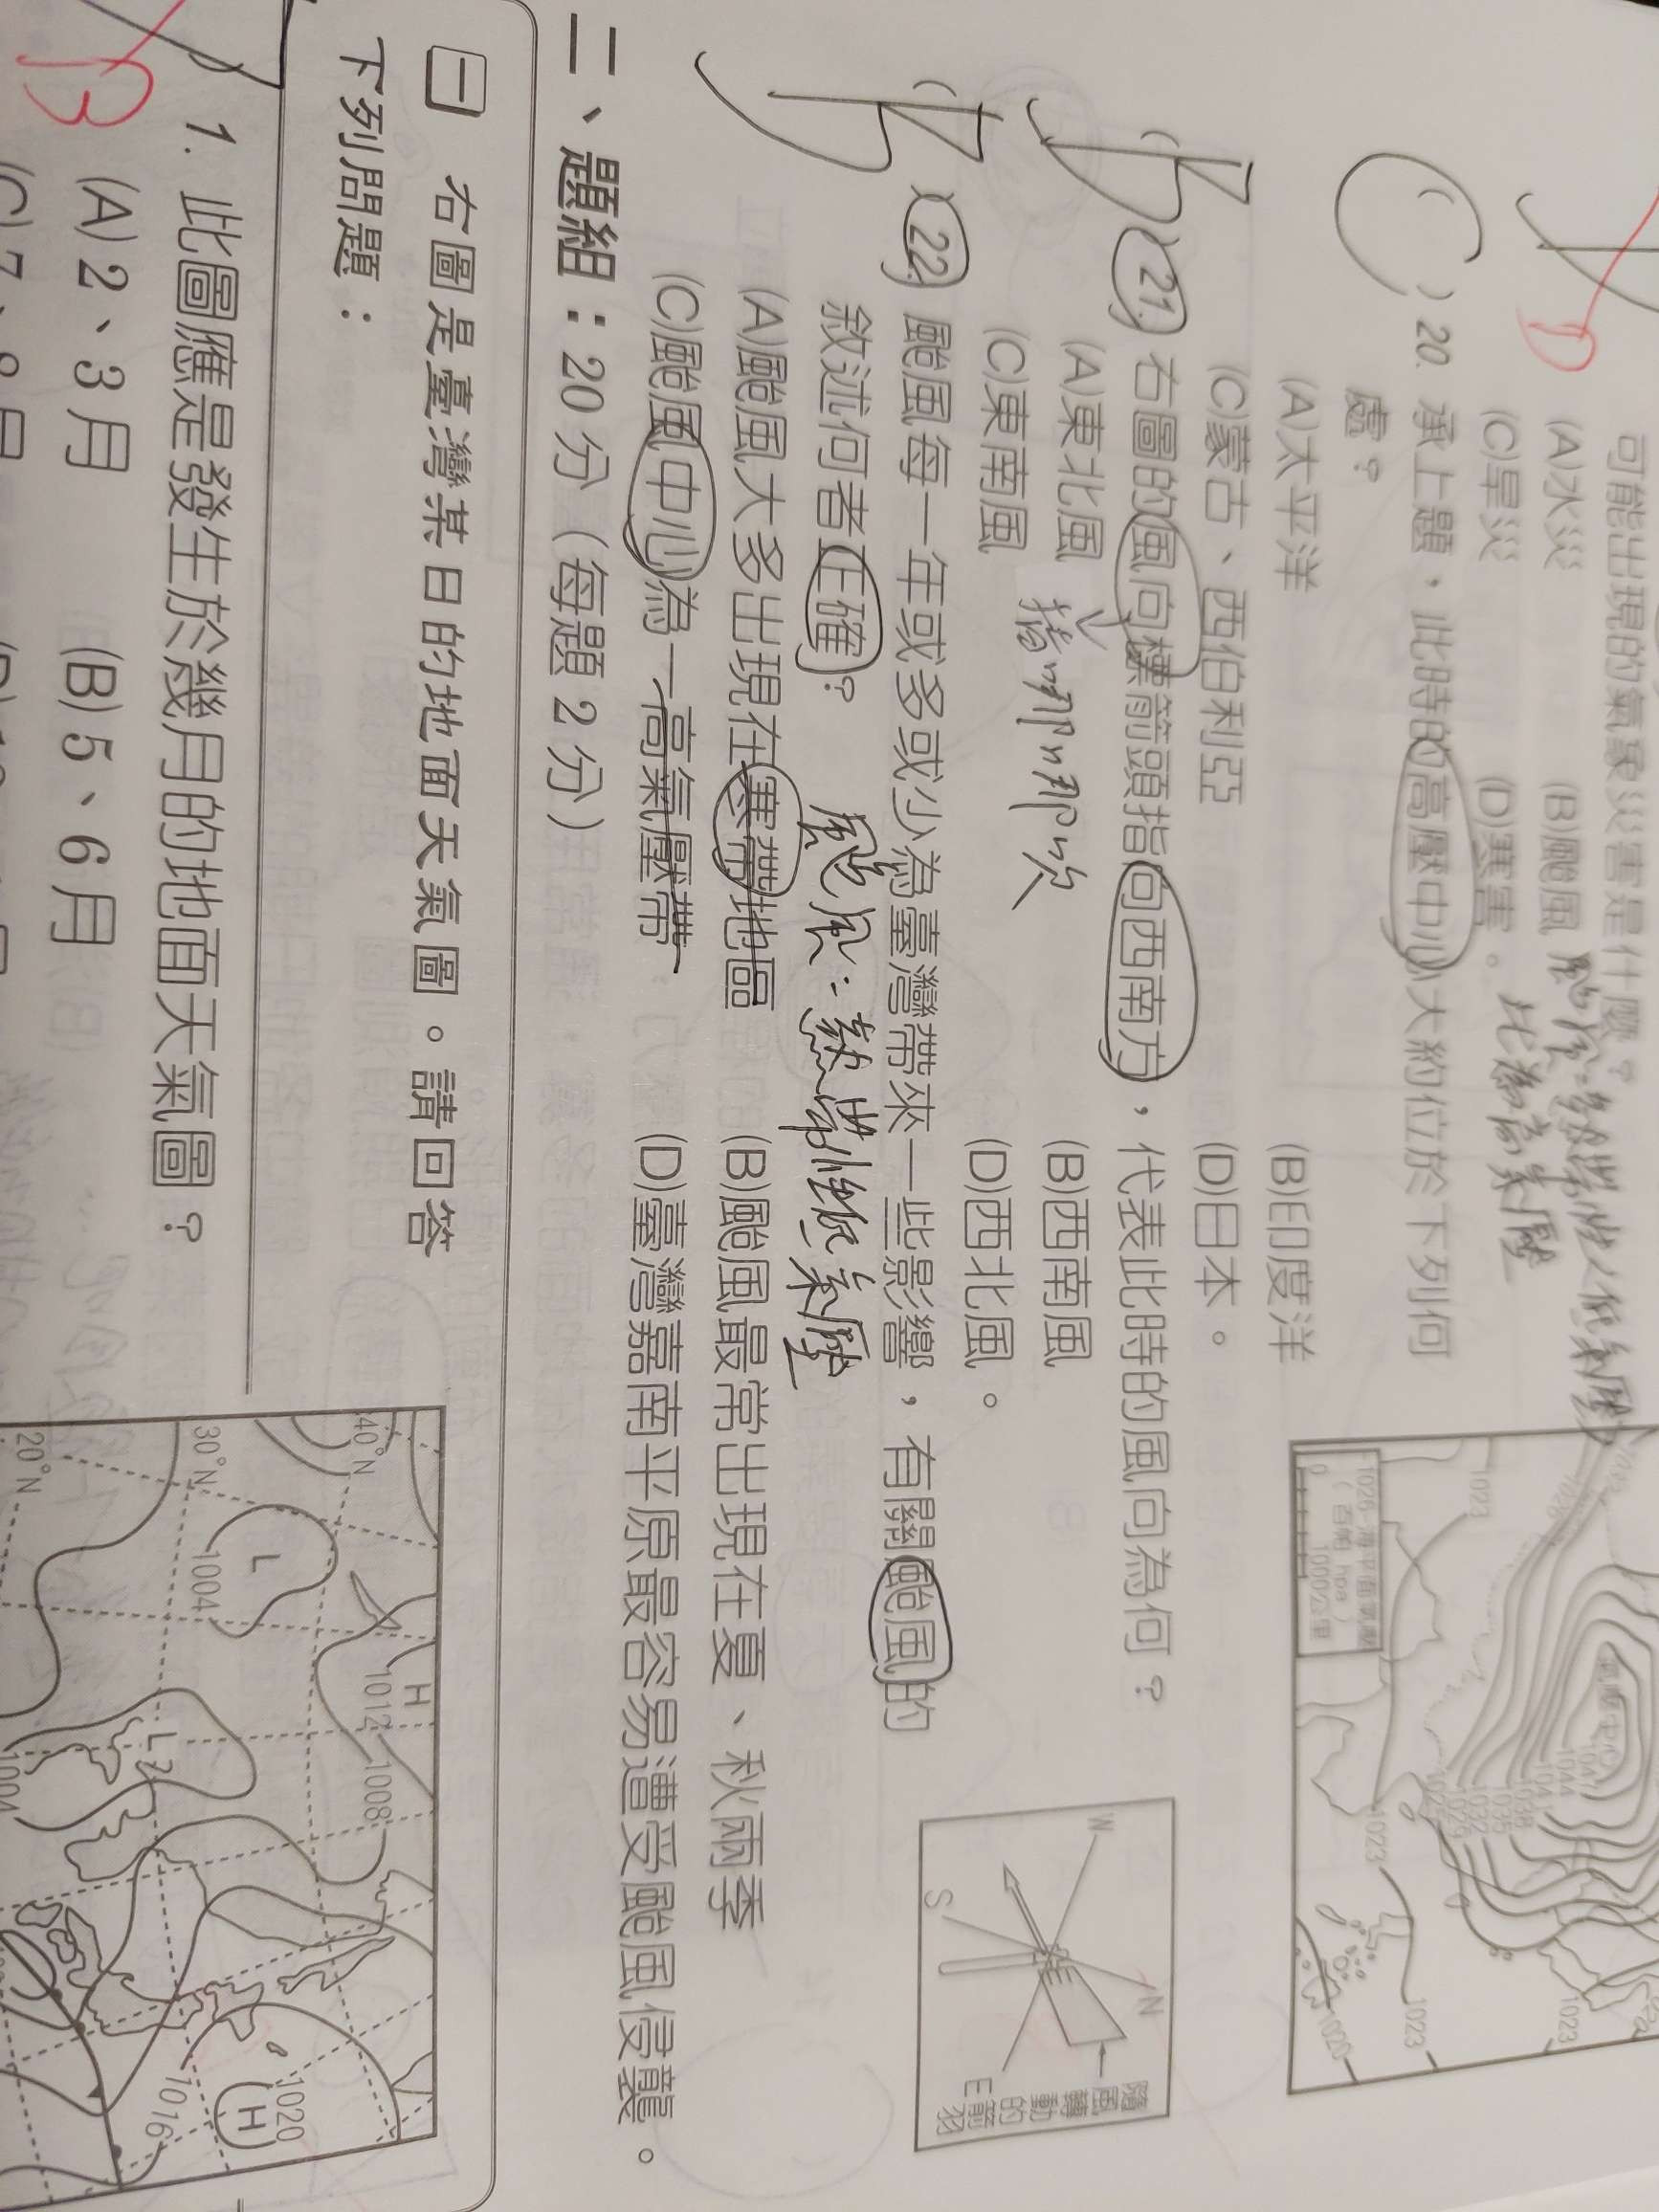 可能出現的氣象災害是什麼?
(A)水災 (B)颱風
(C)旱災 (D)寒害。
D
C
( )20. 承上題,此時的高壓中心大約位於下列何
處?
(A)太平洋 (B)印度洋
(C)蒙古、西伯利亞 (D)日本。
( )21. 右圖的風向標箭頭指向西南方,代表此時的風向為何?
(A)東北風 (B)西南風
(C)東南風 (D)西北風。
( )22. 颱風每一年或多或少為臺灣帶來一些影響,有關颱風的
敘述何者正確?
颱風:熱帶性低氣壓
(A)颱風大多出現在寒帶地區 (B)颱風最常出現在夏、秋兩季
(C)颱風中心為一高氣壓帶 (D)臺灣嘉南平原最容易遭受颱風侵襲。
二、題組:20 分(每題 2 分)
一 右圖是臺灣某日的地面天氣圖。請回答
下列問題:
B
1. 此圖應是發生於幾月的地面天氣圖?
(A)2、3 月 (B)5、6 月
1023
1026
1026 海平面氣壓
(百帕 hpa)
0 1000公里
1047
1044
1044
1038
1035
1032
1029
1023
1023
1023
1020
W
S
N
E
隨風轉動的箭羽
40°N
30°N
20°N
L
1004
H
1012
1008
L
1004
1020
H
1016